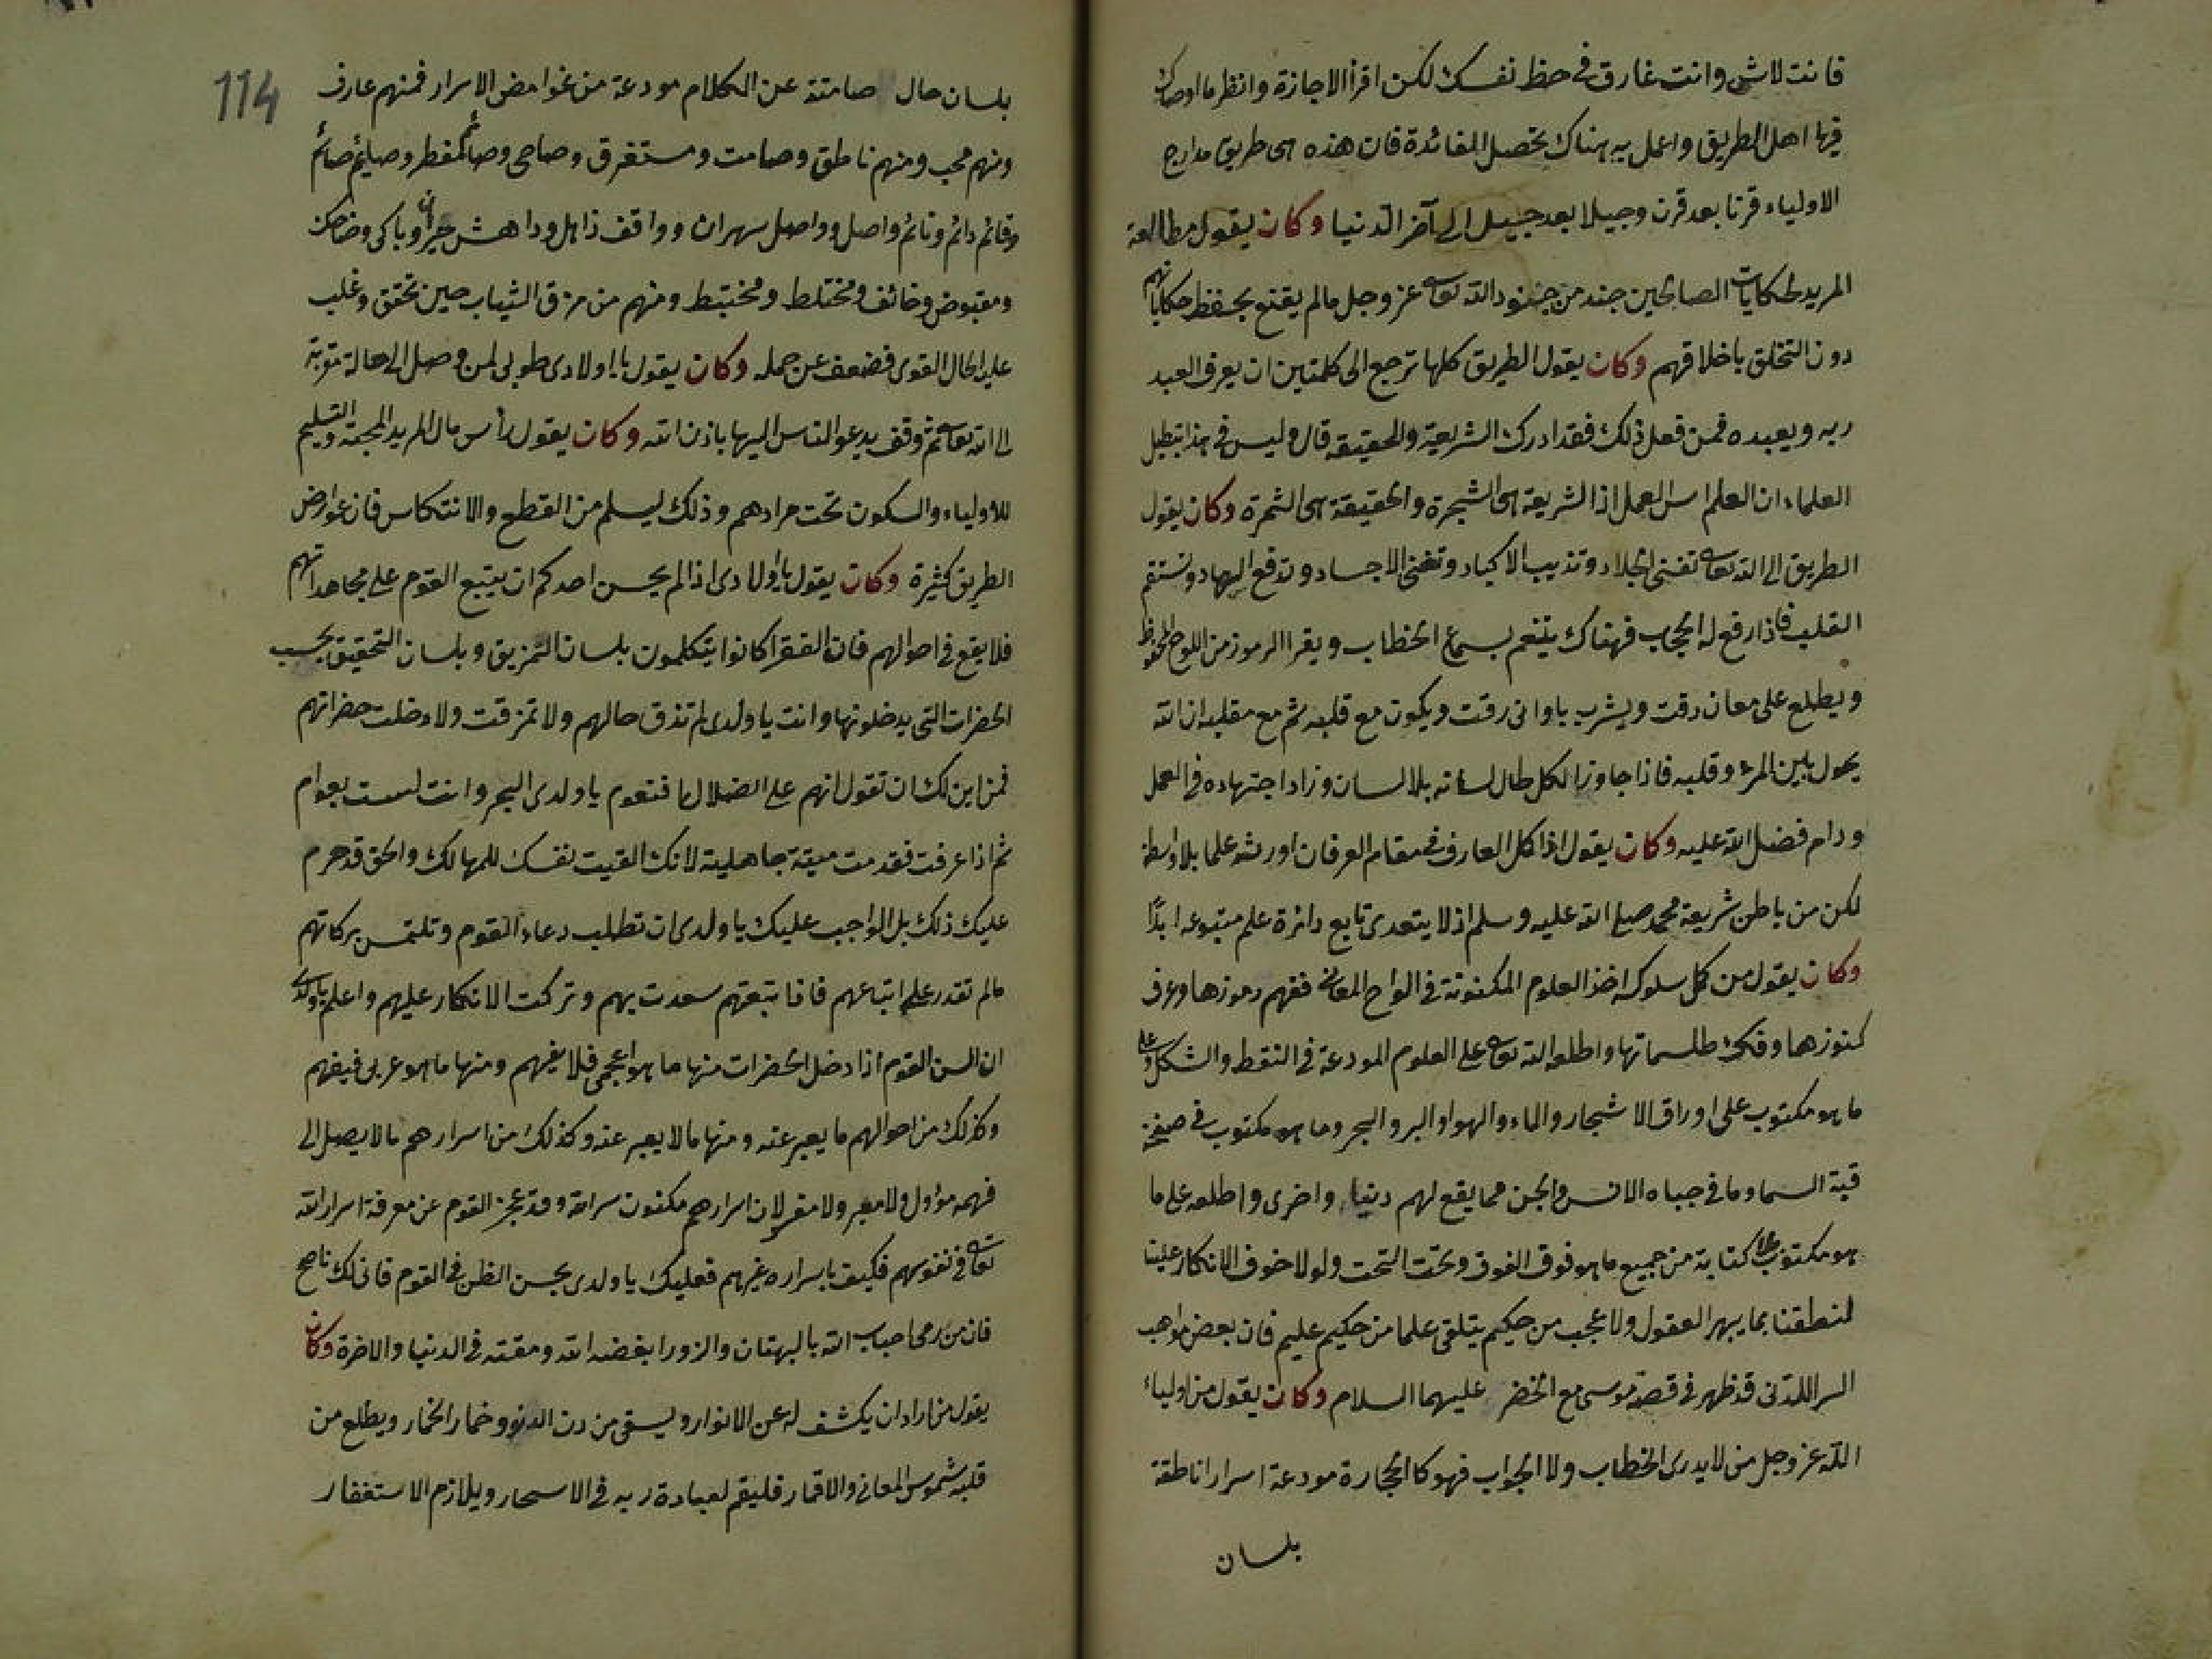 فانت لاشئ وانت غارق في حظ نفسك لكن اقرأ الاجازة وانظر ما اوصاك
فيها اهل الطريق واعمل به هناك تحصل الفائدة فان هذه هي طريق مدارج
الاولياء قرنا بعد قرن وجيلا بعد جيل الى آخر الدنيا وكان يقول مطالعة
المريد لحكايات الصالحين جند من جنود الله تعالى عز وجل مالم يقنع بحفظ حكاياتهم
دون التخلق باخلاقهم وكان يقول الطريق كلها ترجع الى كلمتين ان يعرف العبد
ربه ويعبده فمن فعل ذلك فقد ادرك الشريعة والحقيقة قال وليس في هذا تبطيل
العلماء ان العلم اس العمل اذ الشريعة هي الشجرة والحقيقة هي الثمرة وكان يقول
الطريق الى الله تعالى تفني الجلاد وتذيب الاكباد وتفني الاجساد وتدفع السهاد وتسقم
القلب فاذا رفع له الحجاب فهناك يتنعم بسماع الخطاب ويقرا الرموز من اللوح المحفوظ
ويطلع على معان دقت ويشرب باواني رقت ويكون مع قلبه ثم مع مقلبه ان الله
يحول بين المرء وقلبه فاذا جاوز الكل طال لسانه بلا لسان وزاد اجتهاده في العمل
ودام فضل الله عليه وكان يقول اذا كمل العارف في مقام العرفان اورثه علما بلا واسطة
لكن من باطن شريعة محمد صلى الله عليه وسلم اذ لا يتعدى تابع دائرة علم متبوعه ابدًا
وكان يقول من كمل سلوكه اخذ العلوم المكنونة في الواح المعاني ففهم رموزها وعرف
كنوزها وفك طلسماتها واطلعه الله تعالى على العلوم المودعة في النقط والشكل وعلى
ما هو مكتوب على اوراق الاشجار والماء والهوا والبر والبحر وما هو مكتوب في صفحة
قبة السما وما في جباه الانس والجن مما يقع لهم دنيا واخرى واطلعه على ما
هو مكتوب بلا كتابة من جميع ما هو فوق الفوق وتحت التحت ولولا خوف الانكار علينا
لنطقنا بما يبهر العقول ولا عجب من حكيم يتلقى علما من حكيم عليم فان بعض مواهب
السر اللدني قد ظهر في قصة موسى مع الخضر عليهما السلام وكان يقول من اولياء
الله عز وجل من لا يدرى الخطاب ولا الجواب فهو كالحجارة مودعة اسرارا ناطقة
بلسان
114
بلسان حال صامتة عن الكلام مودعة من غوامض الاسرار فمنهم عارف
ومنهم محب ومنهم ناطق وصامت ومستغرق وصاحى وصائم مفطر وصائم صائم
وقائم دائم ونائم واصل وواصل سهران وواقف ذاهل وداهش حيران وباكى وضاحك
ومقبوض وخائف ومختلط ومختبط ومنهم من مزق الثياب حين تحقق وغلب
عليه الحال القوى فضعف عن حمله وكان يقول يا اولادى طوبى لمن وصل الى حالة متوبة
الى الله تعالى ثم وقف يدعو الناس اليها باذن الله وكان يقول رأس مال المريد المحبة والتسليم
للاولياء والسكون تحت مرادهم وذلك ليسلم من القطع والانتكاس فان عوارض
الطريق كثيرة وكان يقول يا اولادى اذا لم يحسن احدكم ان يتبع القوم على مجاهداتهم
فلا يقع في احوالهم فان الفقرا كانوا يتكلمون بلسان التمزيق وبلسان التحقيق بحسب
الحضرات التي يدخلونها وانت يا ولدى لم تذق حالهم ولا تمزقت ولا دخلت حضراتهم
فمن اين لك ان تقول انهم على الضلال افتعوم يا ولدى البحر وانت لست بعوام
ثم اذا غرقت فقد مت ميتة جاهلية لانك القيت نفسك للمهالك والحق قد حرم
عليك ذلك بل الواجب عليك يا ولدى ان تطلب دعاء القوم وتلتمس بركاتهم
مالم تقدر على اتباعهم فاذا اتبعتهم سعدت بهم وتركت الانكار عليهم واعلم يا ولدى
ان السن القوم اذا دخل الحضرات منها ما هو اعجمى فلا يفهم ومنها ما هو عربى فيفهم
وكذلك من احوالهم ما يعبر عنه ومنها مالا يعبر عنه وكذلك من اسرارهم مالا يصل الى
فهمه مؤول ولا معبر ولا مفسر لان اسرارهم مكنون سر الله وقد عجز القوم عن معرفة اسرار الله
تعالى في نفوسهم فكيف باسراره غيرهم فعليك يا ولدى بحسن الظن في القوم فانى لك ناصح
فان من رمى احباب الله بالبهتان والزور ابغضه الله ومقته في الدنيا والاخرة وكان
يقول من اراد ان يكشف له عن الانوار ويسقى من دن الدنو وخمار الخمار ويطلع من
قلبه شموس المعاني والاقمار فليقم لعبادة ربه في الاسحار ويلازم الاستغفار